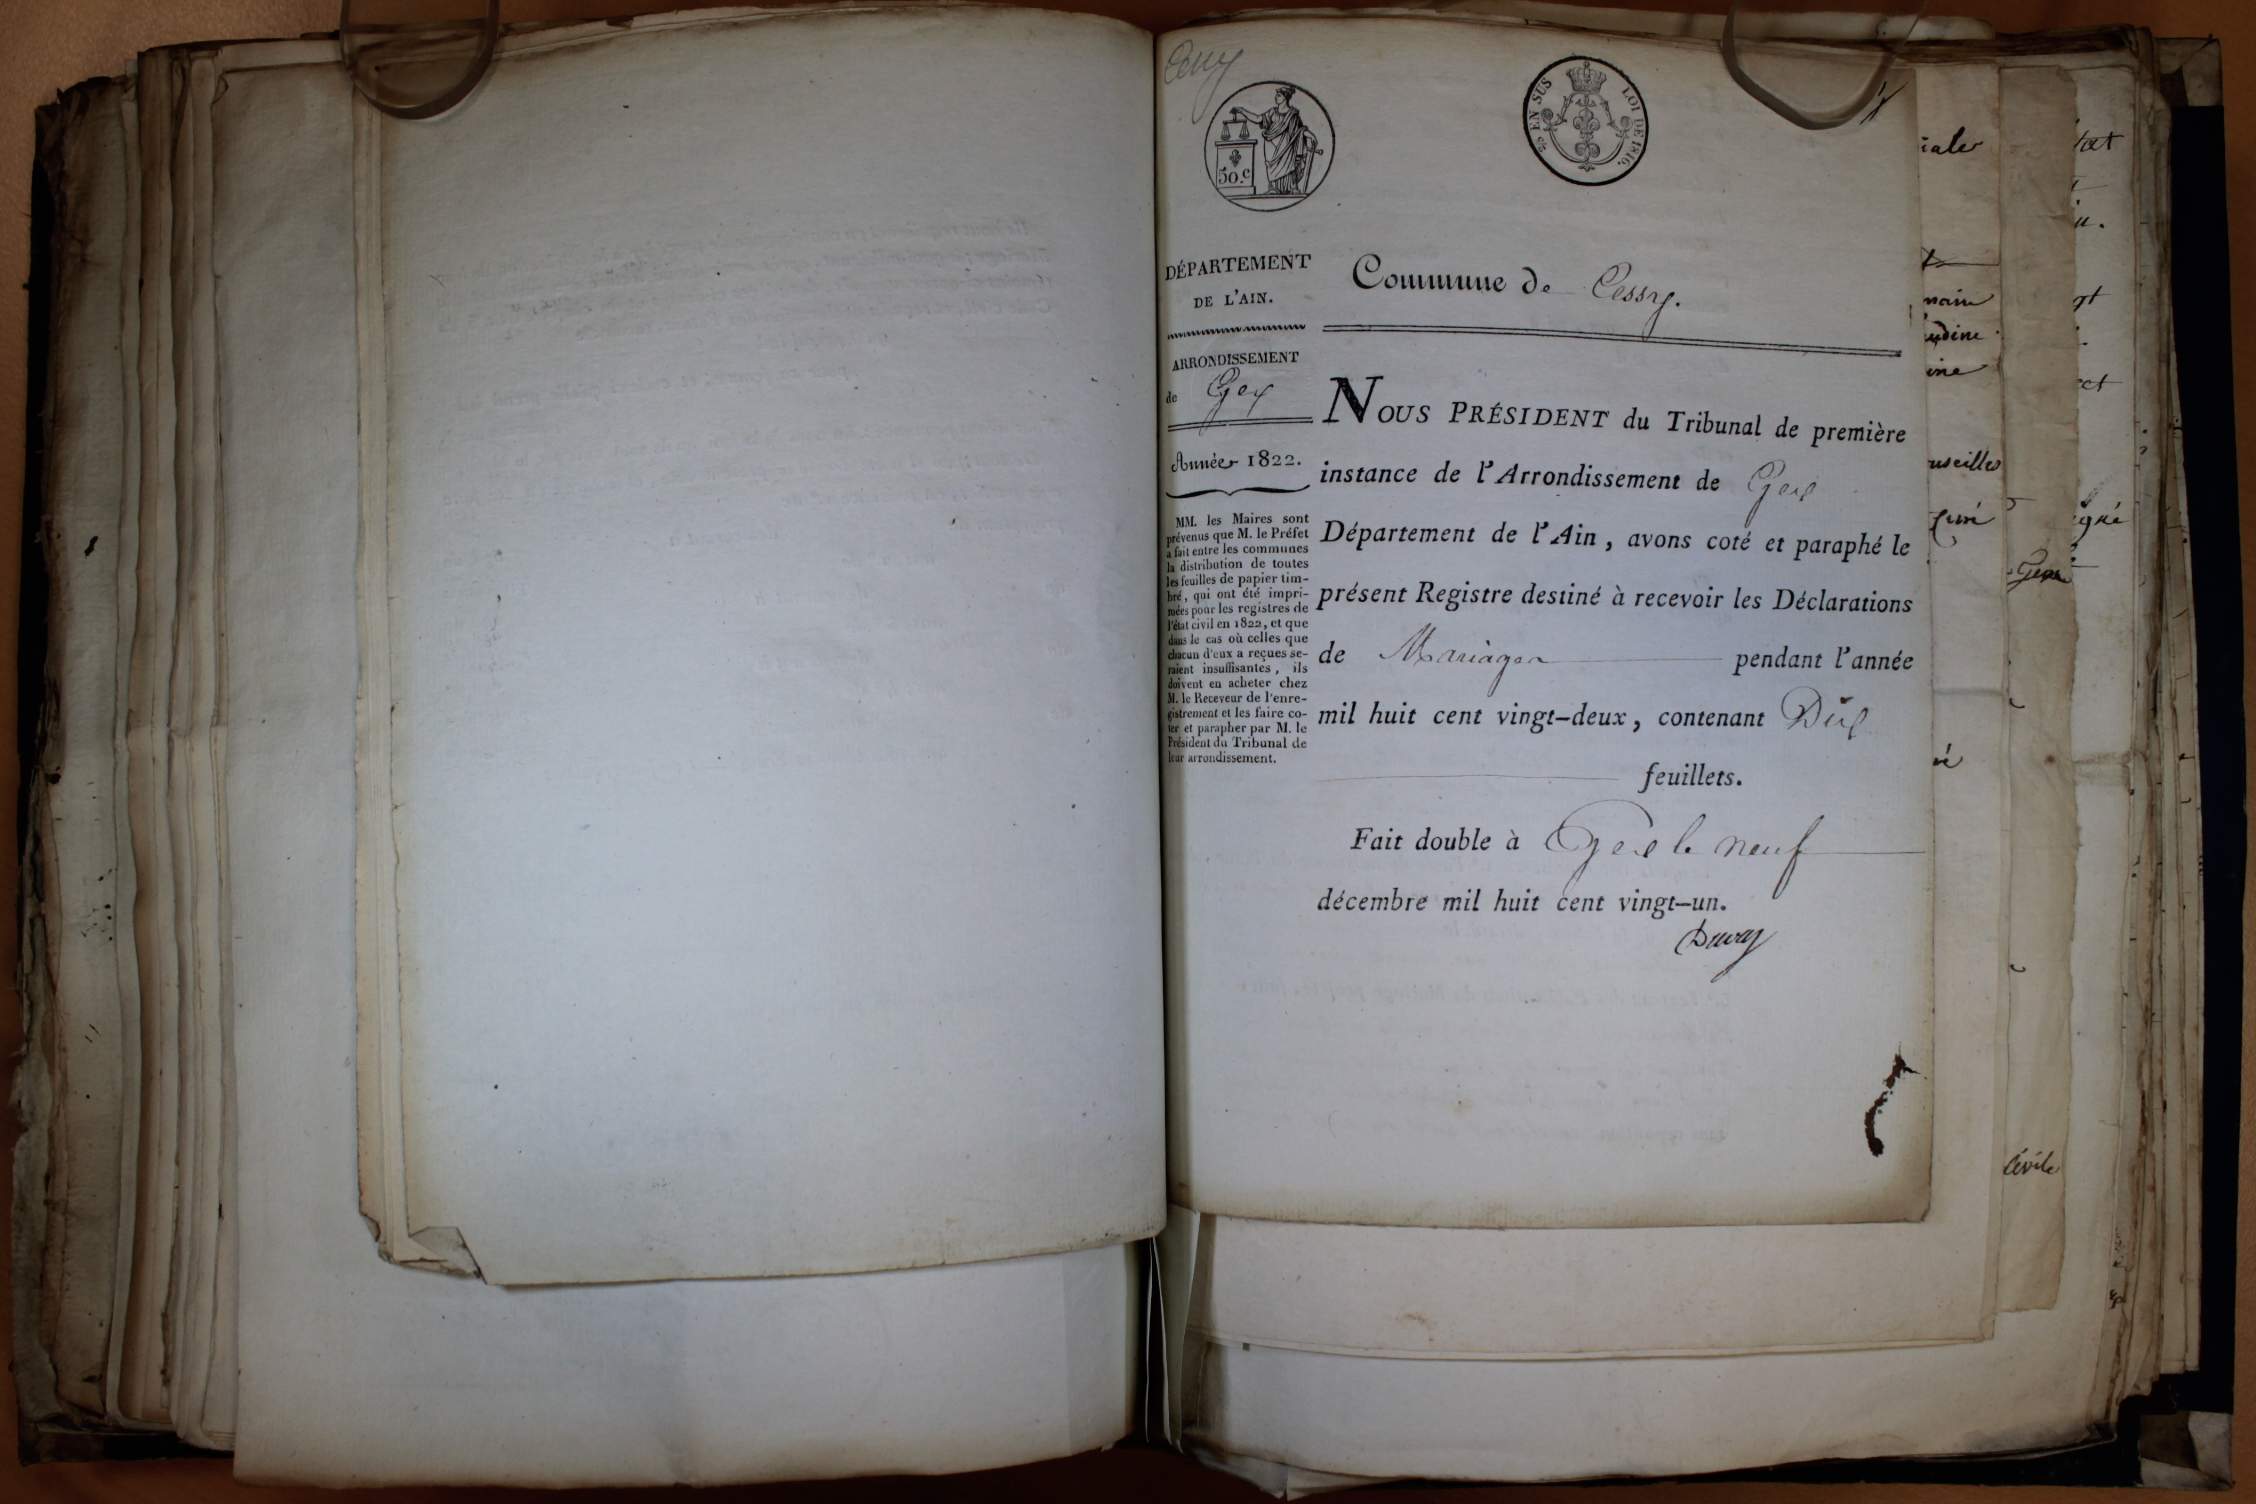 Cessy
50.c
EN SUS LOI DE 1816.
DÉPARTEMENT
DE L'AIN.
ARRONDISSEMENT
de Gex
Année 1822.
MM. les Maires sont
prévenus que M. le Préfet
a fait entre les communes
la distribution de toutes
les feuilles de papier tim-
bré, qui ont été impri-
mées pour les registres de
l'état civil en 1822, et que
dans le cas où celles que
chacun d'eux a reçues se-
raient insuffisantes, ils
doivent en acheter chez
M. le Receveur de l'enre-
gistrement et les faire co-
ter et parapher par M. le
Président du Tribunal de
leur arrondissement.
Commune de Cessy.
NOUS PRÉSIDENT du Tribunal de première
instance de l'Arrondissement de Gex
Département de l'Ain, avons coté et paraphé le
présent Registre destiné à recevoir les Déclarations
de Mariages pendant l'année
mil huit cent vingt-deux, contenant Dix
feuillets.
Fait double à Gex le neuf
décembre mil huit cent vingt-un.
civile